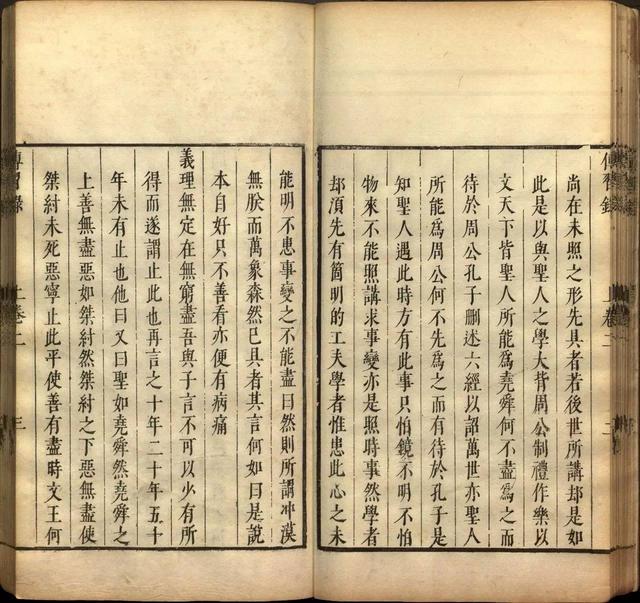 傳習錄
上卷二
尚在未照之形先具者若後世所講却是如
此是以與聖人之學大背周公制禮作樂以
文天下皆聖人所能為堯舜何不盡為之而
待於周公孔子刪述六經以詔萬世亦聖人
所能為周公何不先為之而有待於孔子是
知聖人遇此時方有此事只怕鏡不明不怕
物來不能照講求事變亦是照時事然學者
却須先有箇明的工夫學者惟患此心之未
能明不患事變之不能盡曰然則所謂冲漠
無朕而萬象森然已具者其言何如曰是說
本自好只不善看亦便有病痛
義理無定在無窮盡吾與子言不可以少有所
得而遂謂止此也再言之十年二十年五十
年未有止也他日又曰聖如堯舜然堯舜之
上善無盡惡如桀紂然桀紂之下惡無盡使
桀紂未死惡寧止此乎使善有盡時文王何
傳習錄
上卷二
三